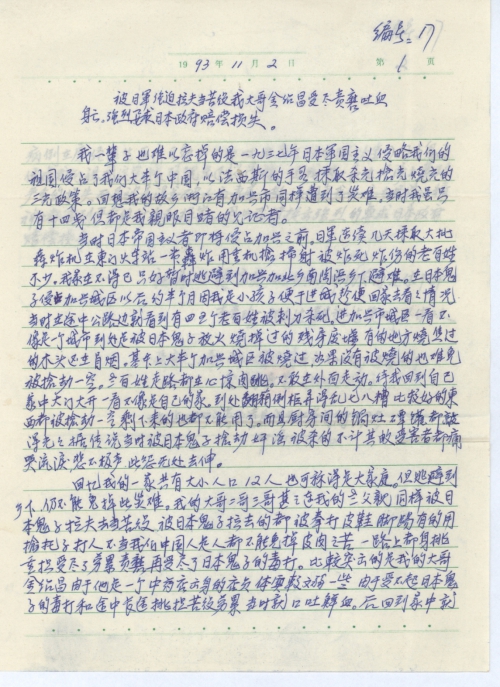 编号：17
1993年11月2日 第1页
被日军强迫拉夫当苦役我大哥金谷昌受尽责磨吐血
身亡，强烈要求日本政府赔偿损失。
我一辈子也难以忘掉的是一九三七年日本军国主义侵略我们的
祖国，侵占了我们大半个中国，以法西斯的手段采取杀光抢光烧光的
三光政策。回想我的故乡浙江省加兴市同样遭到了灾难，当时我虽只
有十四岁，但都是我亲眼目睹的见证者。
当时日本帝国主义者即将侵占加兴之前，日军连续几天采取大批
轰炸机在东门火车站一带轰炸，用重机枪扫射，被炸死炸伤的老百姓
不少。我家在不得已只好暂时逃避到加兴加北乡南阁浜乡下避难。在日本鬼
子侵占加兴城区以后约半个月因我是小孩子便于进城，派使回家去看之情况
当时在途中公路边就看到有四五个老百姓被刺刀杀死，进加兴市城区一看不
像是个城市到处是被日本鬼子放火烧掉过的残丰废墟，有的地方烧焦过
的木头还在冒烟。基本上大半个加兴城区被烧过，如果没有被烧的也难免
被抢劫一空。老百姓走路都在心惊肉跳，不敢在外面走动。待我回到自己
家中大门大开一看不像是自己的家，到处翻箱倒柜弄得乱七八糟，比较好的东
西都被抢劫一空，剩下来的也都不能用了。而且厨房间的锅灶
哭流泪悲不极声此怨无处去伸。
回忆我的一家共有大小人口12人也可称得是大家庭。但逃避到
乡下，仍不能免掉此灾难。我的大哥二哥三哥甚至连我的老父亲同样被日
本鬼子拉夫去当苦役，被日本鬼子拉去的都被拳打皮鞋脚踢有的用
枪托子打人，不当我们中国人是人，都不能免掉皮肉之苦，一路上都身挑
重担受尽了劳累责磨再受尽了日本鬼子的毒打。比较突出的是我的大哥
金谷昌由于他是一个中药店出身的店员体质较文弱一些，由于受不起日本鬼
子的毒打和途中长途挑担苦役劳累，当时就口吐鲜血。后回到家中就